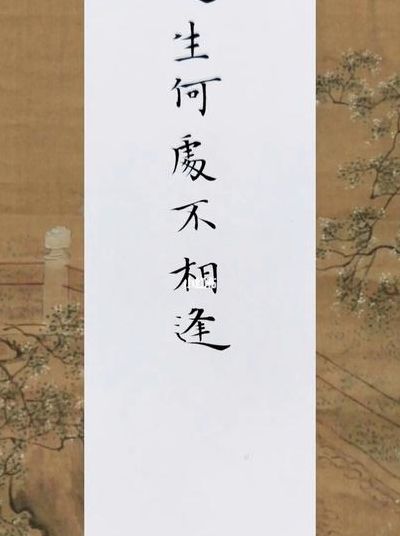 生何處不相逢